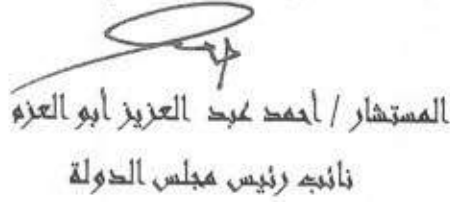 المستشار / أحمد عبد العزيز أبو العزم
نائب رئيس مجلس الدولة